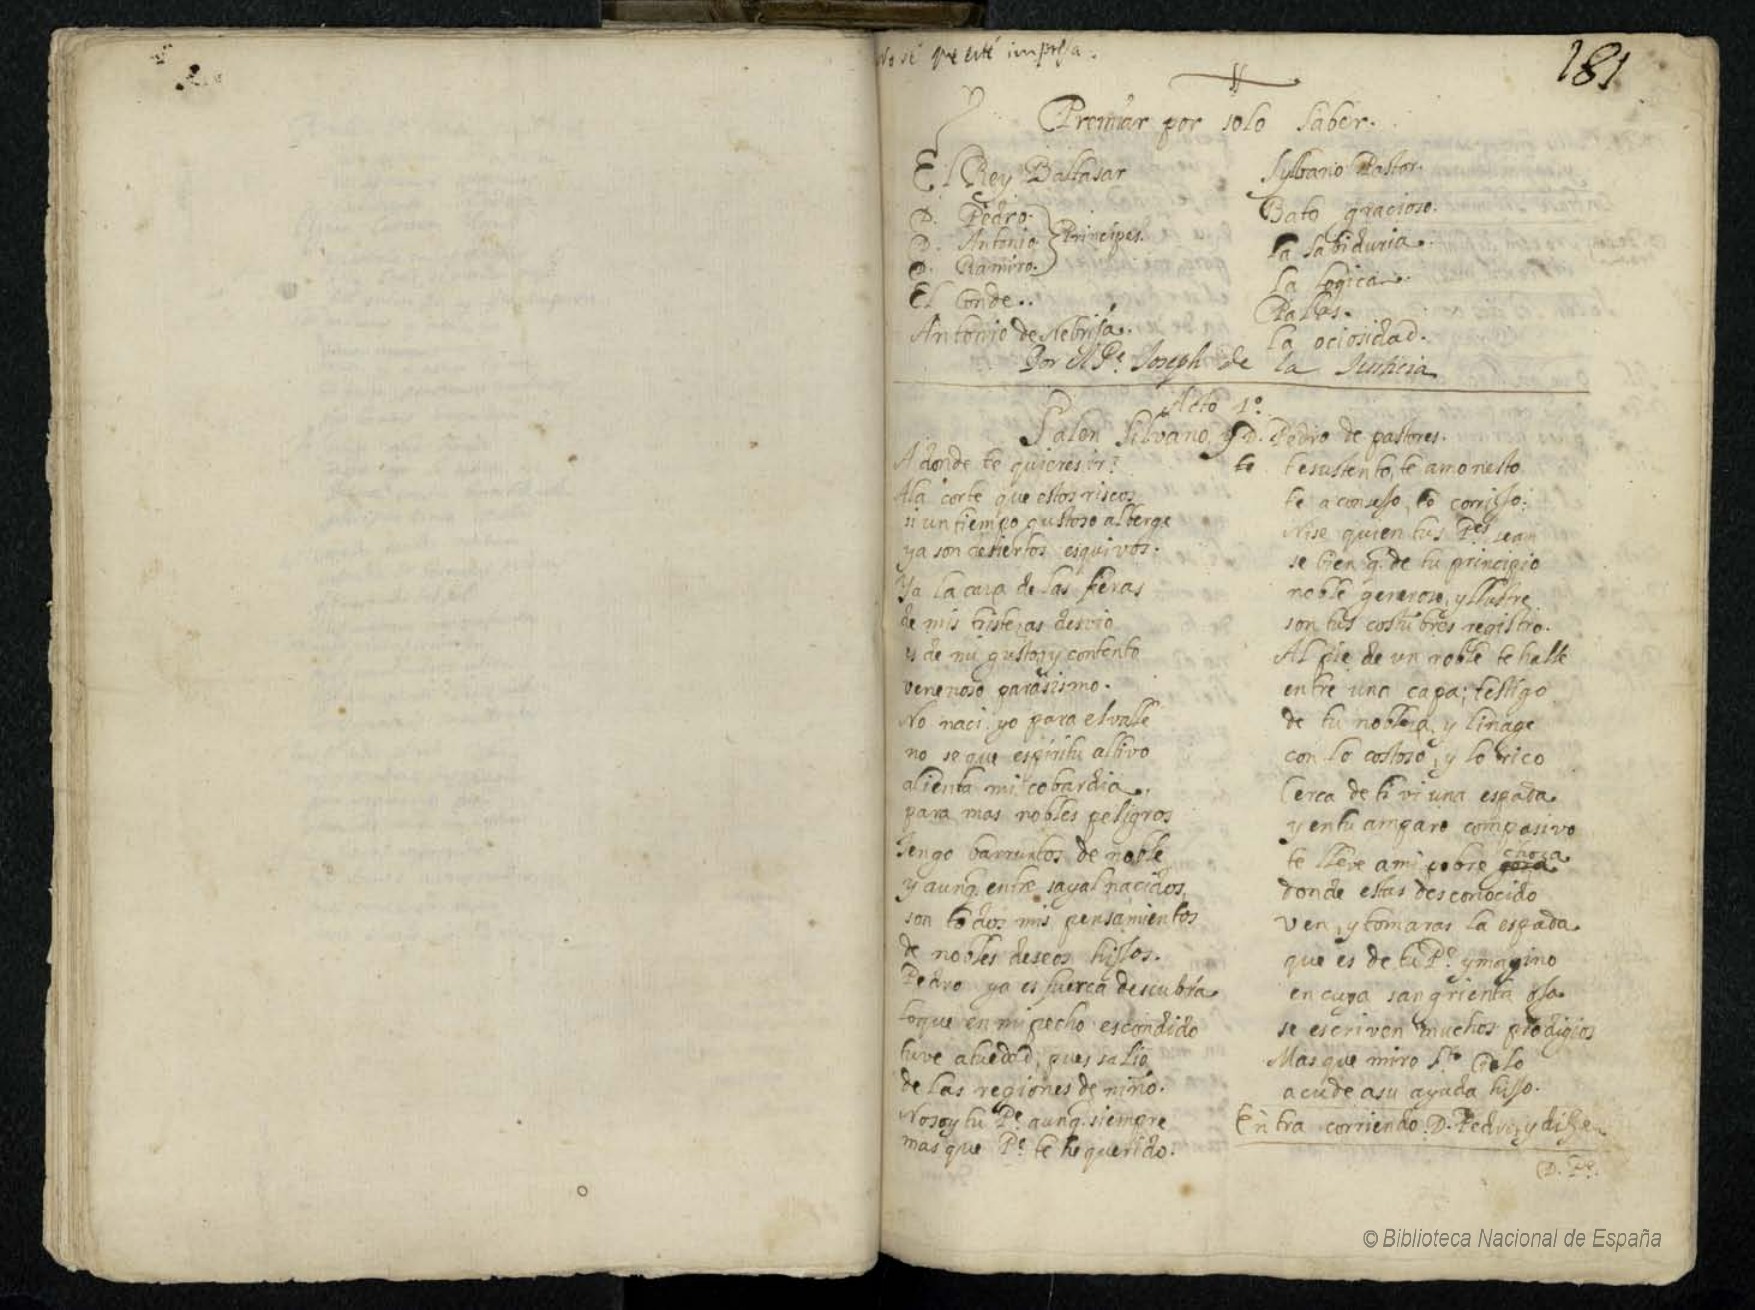 No sé que esté impressa.
181
Premiar por solo saber.
El Rey Baltasar
D. Pedro.
D. Antonio
D. Ramiro.
Principes.
El Conde..
Antonio de Nebrija.
Sylvano Pastor.
Bato gracioso.
La Sabiduria.
La Logica.
Palas.
La ociosidad.
Por el Pe. Joseph de la Justicia
Acto 1º
Salen Silvano, y D. Pedro de pastores.
A donde te quieres ir?
Ala corte que estos riscos
si un tiempo gustoso alberge
ya son desiertos esquivos.
Ya la caza de las fieras
de mis tristezas desvio
es de mi gusto, y contento
venenoso parasismo.
No naci yo para el valle
no se que espiritu altivo
alienta mi cobardia
para mas nobles peligros
Tengo barruntos de noble
y aunq. entre sayal nacidos
son todos mis pensamientos
de nobles deseos hijos.
Pedro ya es fuerca descubra
loque en mi pecho escondido
tuve atu edad, pues salio
de las regiones de niño.
No soy tu Pe. aunq. siempre
mas que Pe. te he querido.
te te sustento, te amonesto
te aconsejo, te corrijo.
Nise quien tus Pes. sean
se bien q. de tu principio
noble generoso, y llustre
son tus costubres registro.
Al pie de un roble te halle
entre una capa; testigo
de tu nobleza, y linage
con lo costoso, y lo rico
Cerca de ti vi una espada
y entu amparo compasivo
te lleve ami pobre choza
donde estas desconocido
ven, y tomaras la espada
que es de tu Pe. ymagino
en cuya sangrienta oja
se escriven muchos prodigios
Mas que miro Sto. Cielo
acude asu ayuda hijo.
Entra corriendo D. Pedro, y dize
(D. Po.
© Biblioteca Nacional de España